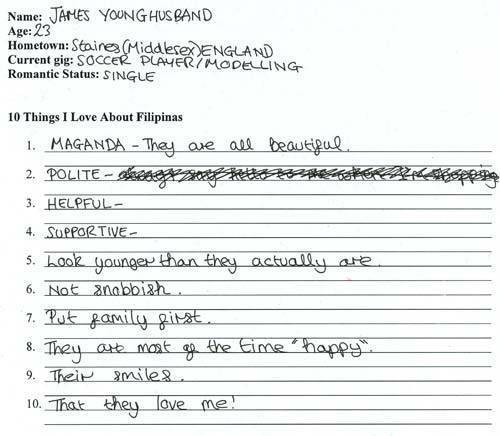 Name: JAMES YOUNGHUSBAND
Age: 23
Hometown: Staines (Middlesex) ENGLAND
Current gig: SOCCER PLAYER/MODELLING
Romantic Status: SINGLE
10 Things I Love About Filipinas
1. MAGANDA - They are all beautiful.
2. POLITE -
3. HELPFUL -
4. SUPPORTIVE -
5. Look younger than they actually are.
6. Not snobbish.
7. Put family first.
8. They are most of the time "happy".
9. Their smiles.
10. That they love me!